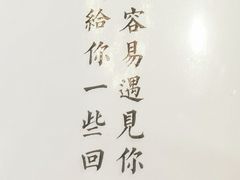 容易遇見你
給你一些回